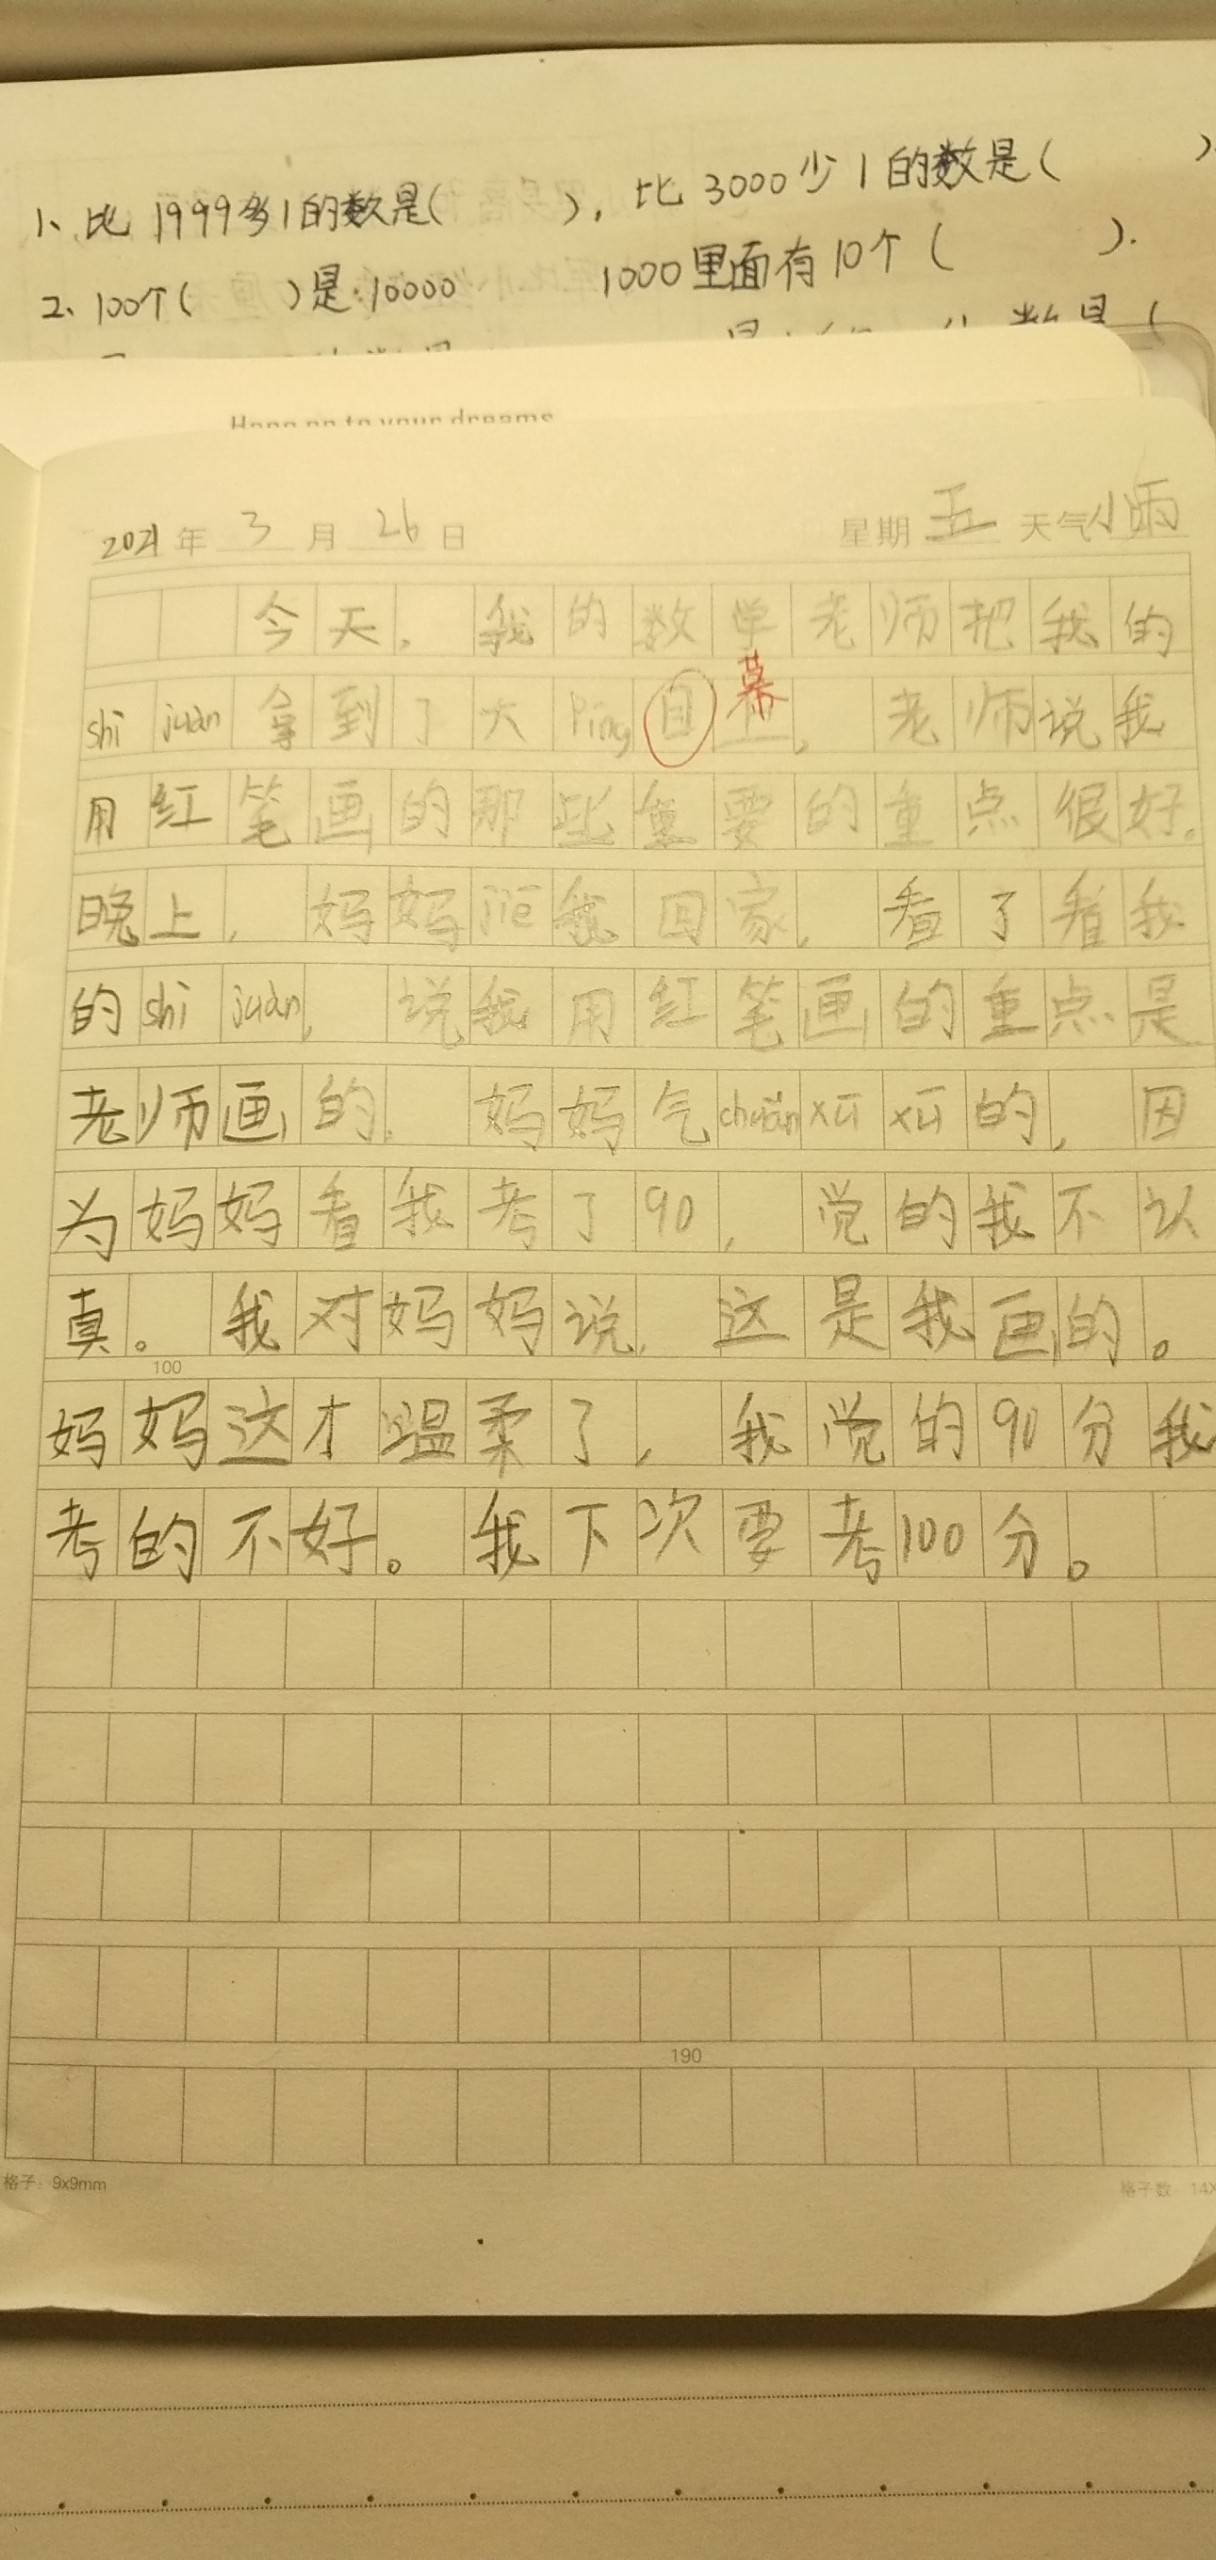 1、比1999多1的数是(    ), 比3000少1的数是(    )
2、100个(    )是10000    1000里面有10个(    ).
数是(
Hang on to your dreams
2021年3月26日 星期五 天气小雨
今天，我的数学老师把我的
shì juàn拿到了大Píng目幕上，老师说我
用红笔画的那些重要的重点很好。
晚上，妈妈jiē我回家，看了看我
的shì juàn，说我用红笔画的重点是
老师画的，妈妈气chuǎn xū xū的，因
为妈妈看我考了90，觉的我不认
真。我对妈妈说，这是我画的。
100
妈妈这才温柔了，我觉的90分我
考的不好。我下次要考100分。
190
格子：9x9mm 格子数：14X